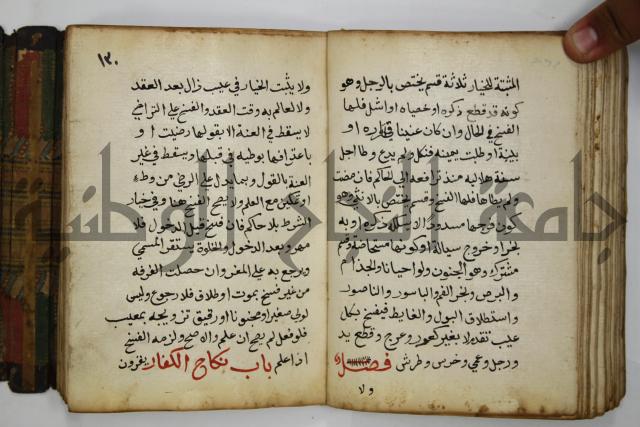 المثبتة للخيار ثلاثة قسم يختص بالرجل وهو
كونه قد قطع ذكره او خصياه او اشل فلها
الفسخ في الحال وان كان عنينا باقراره او
ببينة او طلبت يمينه فنكل ولم يدع وطا اجل
سنة هلالية منذ ترافعه الى الحاكم فان مضت
ولم يطاها فلها الفسخ وقسم يختص بالانثى وهو
كون فرجها مسدودا لا يسلكه ذكر او به
بخر او قروح سيالة او كونها مستحاضة وقسم
مشترك وهو الجنون ولو احيانا والجذام
والبرص وبخر الفم والباسور والناصور
واستطلاق البول والغايط فيفسخ بكل
عيب تقدم لا بغيره كعور وعرج وقطع يد
ورجل وعمي وخرس وطرش فصل
ولا
١٣٠
ولا يثبت الخيار في عيب زال بعد العقد
ولا لعالم به وقت العقد والفسخ على التراخي
لا يسقط في العنة الا بقولها رضيت او
باعترافها بوطيه في قبلها ويسقط في غير
العنة بالقول وبما يدل على الرضى من وطء
او تمكين مع العلم ولا يصح الفسخ هنا وفي خيار
الشرط بلا حاكم فان فسخ قبل الدخول فلا
مهر وبعد الدخول والخلوة يستقر المسمى
ويرجع به على المغر وان حصلت الفرقه
من غير فسخ بموت او طلاق فلا رجوع وليس
لولي صغير او مجنون او رقيق تزويجه بمعيب
فلو فعل لم يصح ان علم والا صح ولزمه الفسخ
اذا علم باب نكاح الكفار يقرون
جامعة النجاح الوطنية